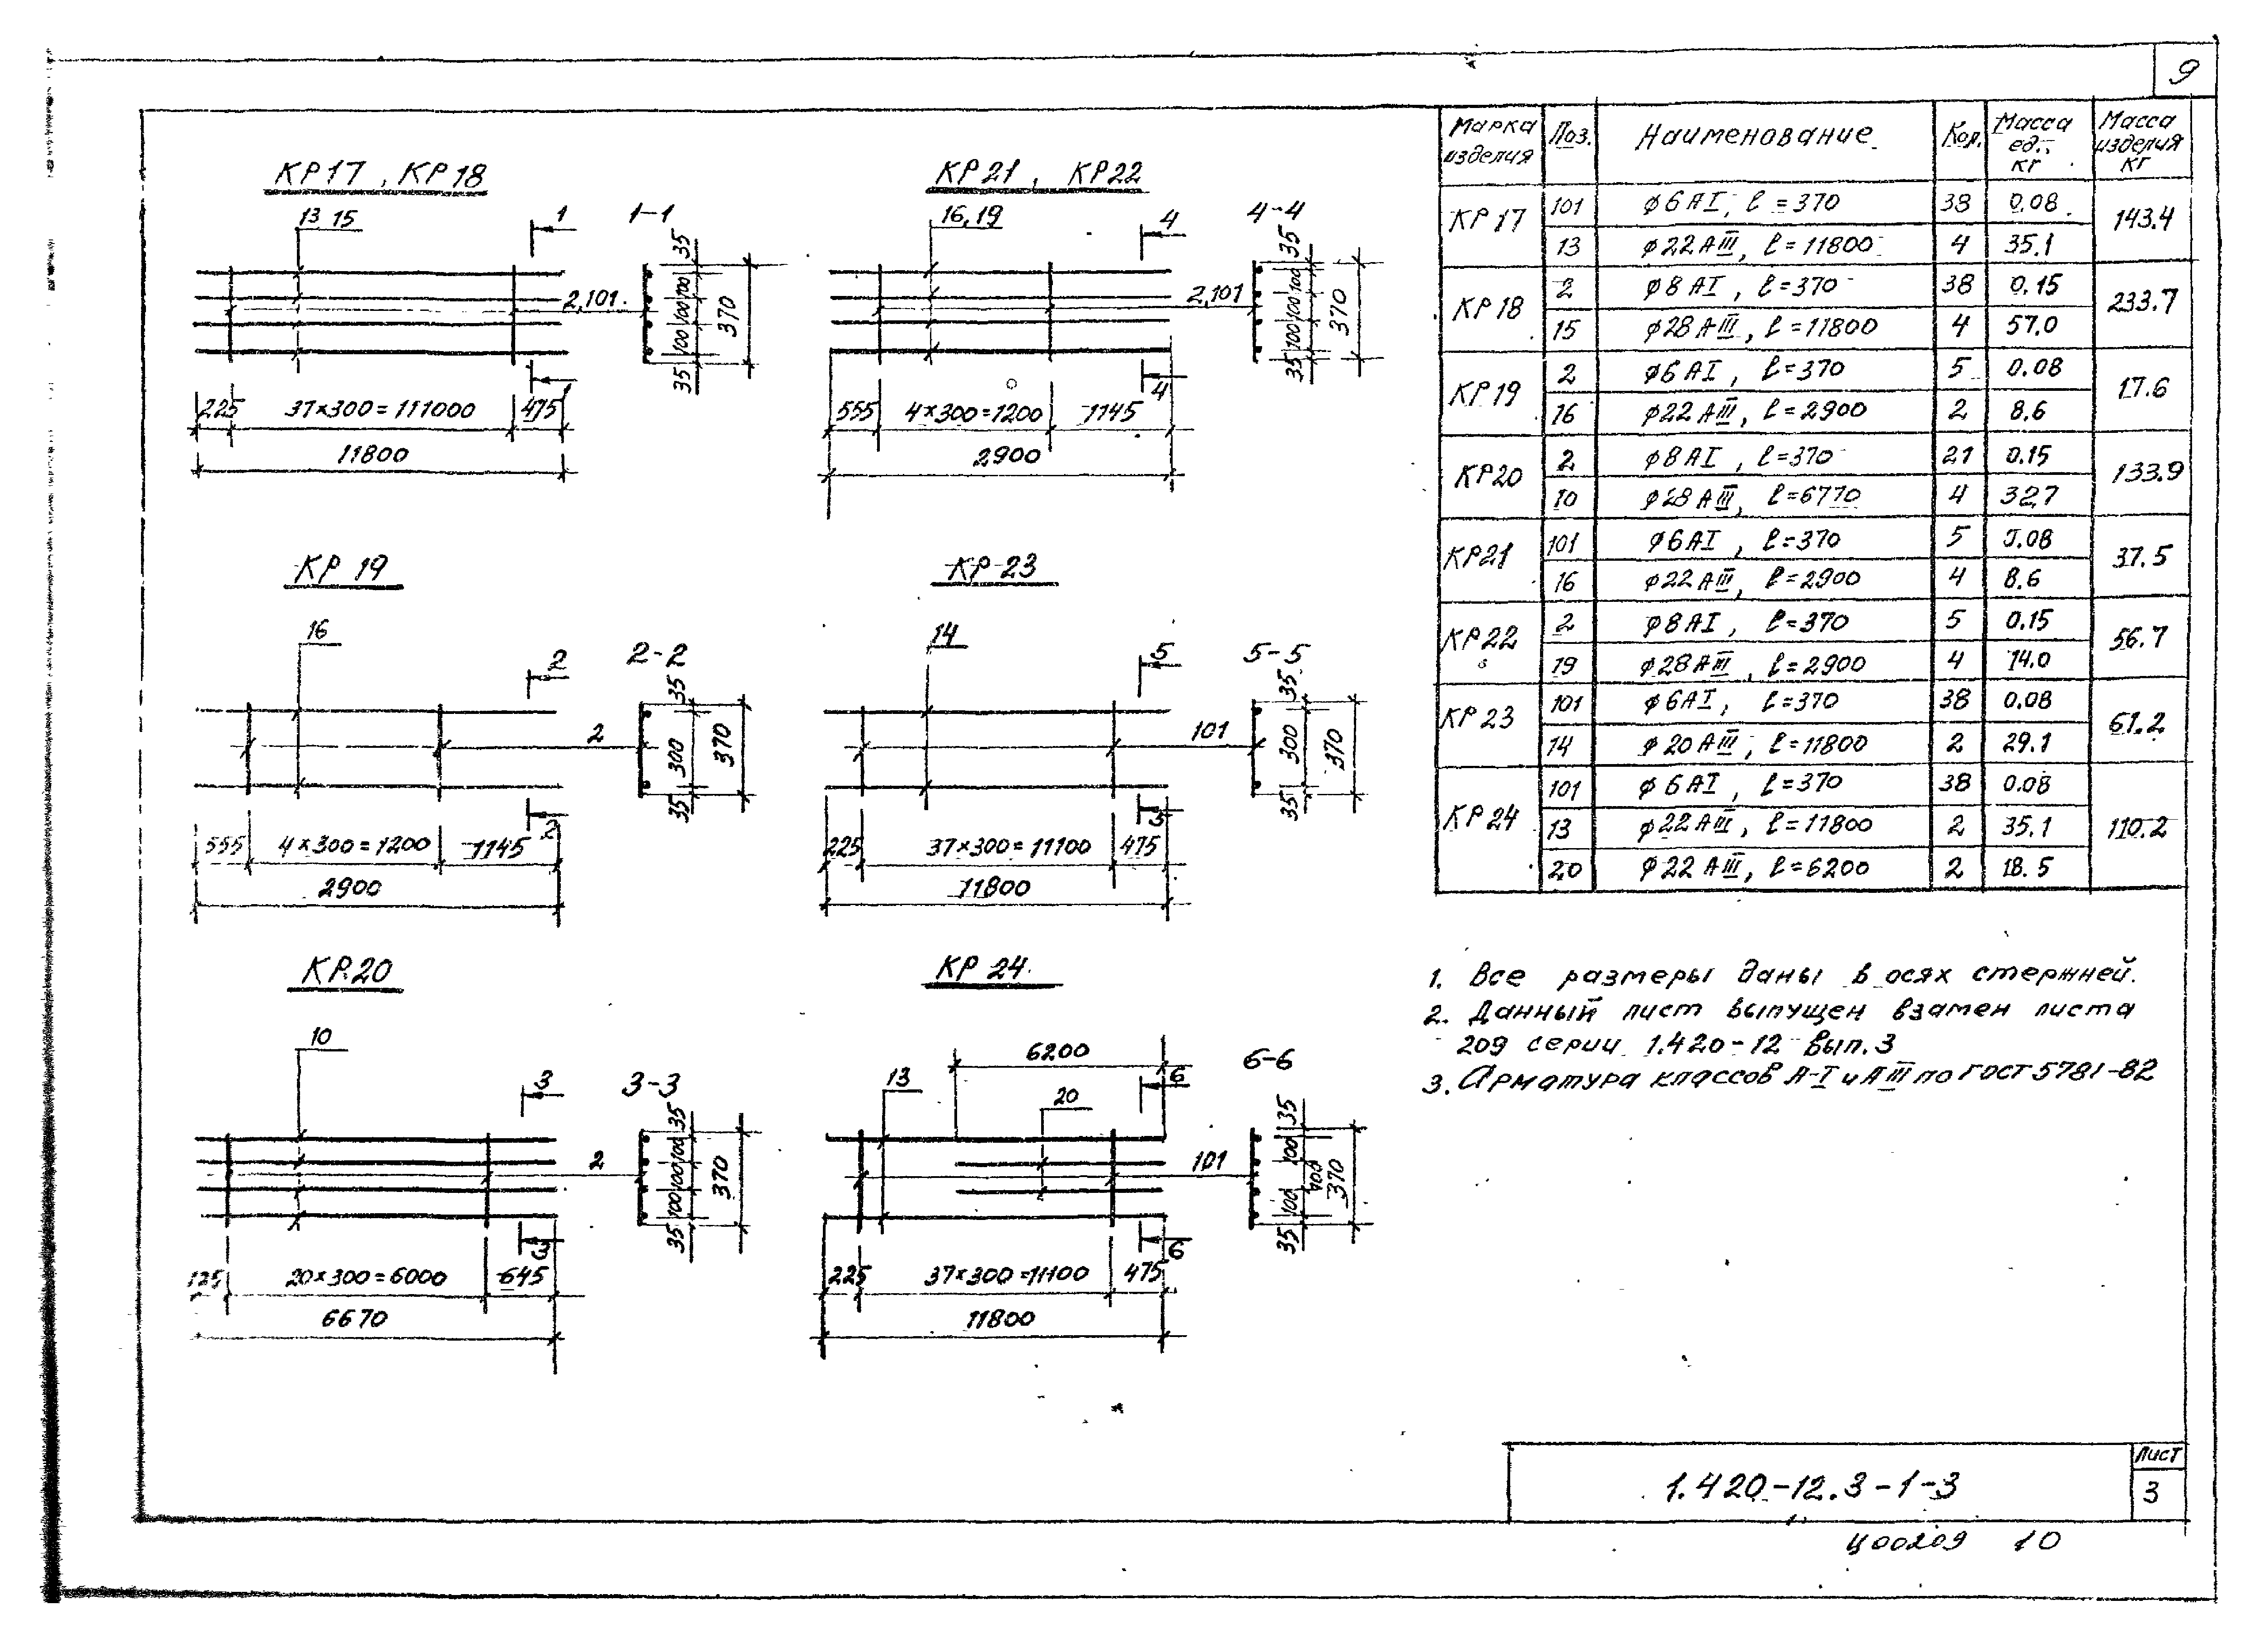 9
КР17, КР18
13 15
1
1-1
2,101.
35
100 100 100
35
370
1
225 37×300=111000 475
11800
КР21, КР22
16,19
4
4-4
2,101
35
100 100 100
35
370
4
555 4×300=1200 1145
2900
КР 19
16
2
2-2
2
35
300
35
370
2
555 4×300=1200 1145
2900
КР 23
14
5
5-5
101
35
300
35
370
5
225 37×300=11100 475
11800
КР.20
10
3
3-3
2
35
100 100 100
35
370
3
125 20×300=6000 645
6670
КР 24.
6200
13
20
6
6-6
101
35
100 100 100
35
370
6
225 37×300=11100 475
11800
Марка изделия Поз. Наименование Кол. Масса ед., кг Масса изделия кг
КР 17 101 ф6АI, ℓ=370 38 0.08 143.4
13 ф22АIII, ℓ=11800 4 35.1
КР 18 2 ф8АI, ℓ=370 38 0.15 233.7
15 ф28АIII, ℓ=11800 4 57.0
КР 19 2 ф6АI, ℓ=370 5 0.08 17.6
16 ф22АIII, ℓ=2900 2 8.6
КР20 2 ф8АI, ℓ=370 21 0.15 133.9
10 ф28АIII, ℓ=6770 4 32,7
КР21 101 ф6АI, ℓ=370 5 0.08 37.5
16 ф22АIII, ℓ=2900 4 8.6
КР22 2 ф8АI, ℓ=370 5 0.15 56.7
19 ф28АIII, ℓ=2900 4 14.0
КР 23 101 ф6АI, ℓ=370 38 0.08 61.2
14 ф20АIII, ℓ=11800 2 29.1
КР 24 101 ф6АI, ℓ=370 38 0.08 110.2
13 ф22АIII, ℓ=11800 2 35.1
20 ф22АIII, ℓ=6200 2 18.5
1. Все размеры даны в осях стержней.
2. Данный лист выпущен взамен листа
209 серии 1.420-12 вып.3
3. Арматура классов А-I и АIII по ГОСТ 5781-82
1.420-12.3-1-3
Лист
3
Ц00209 10